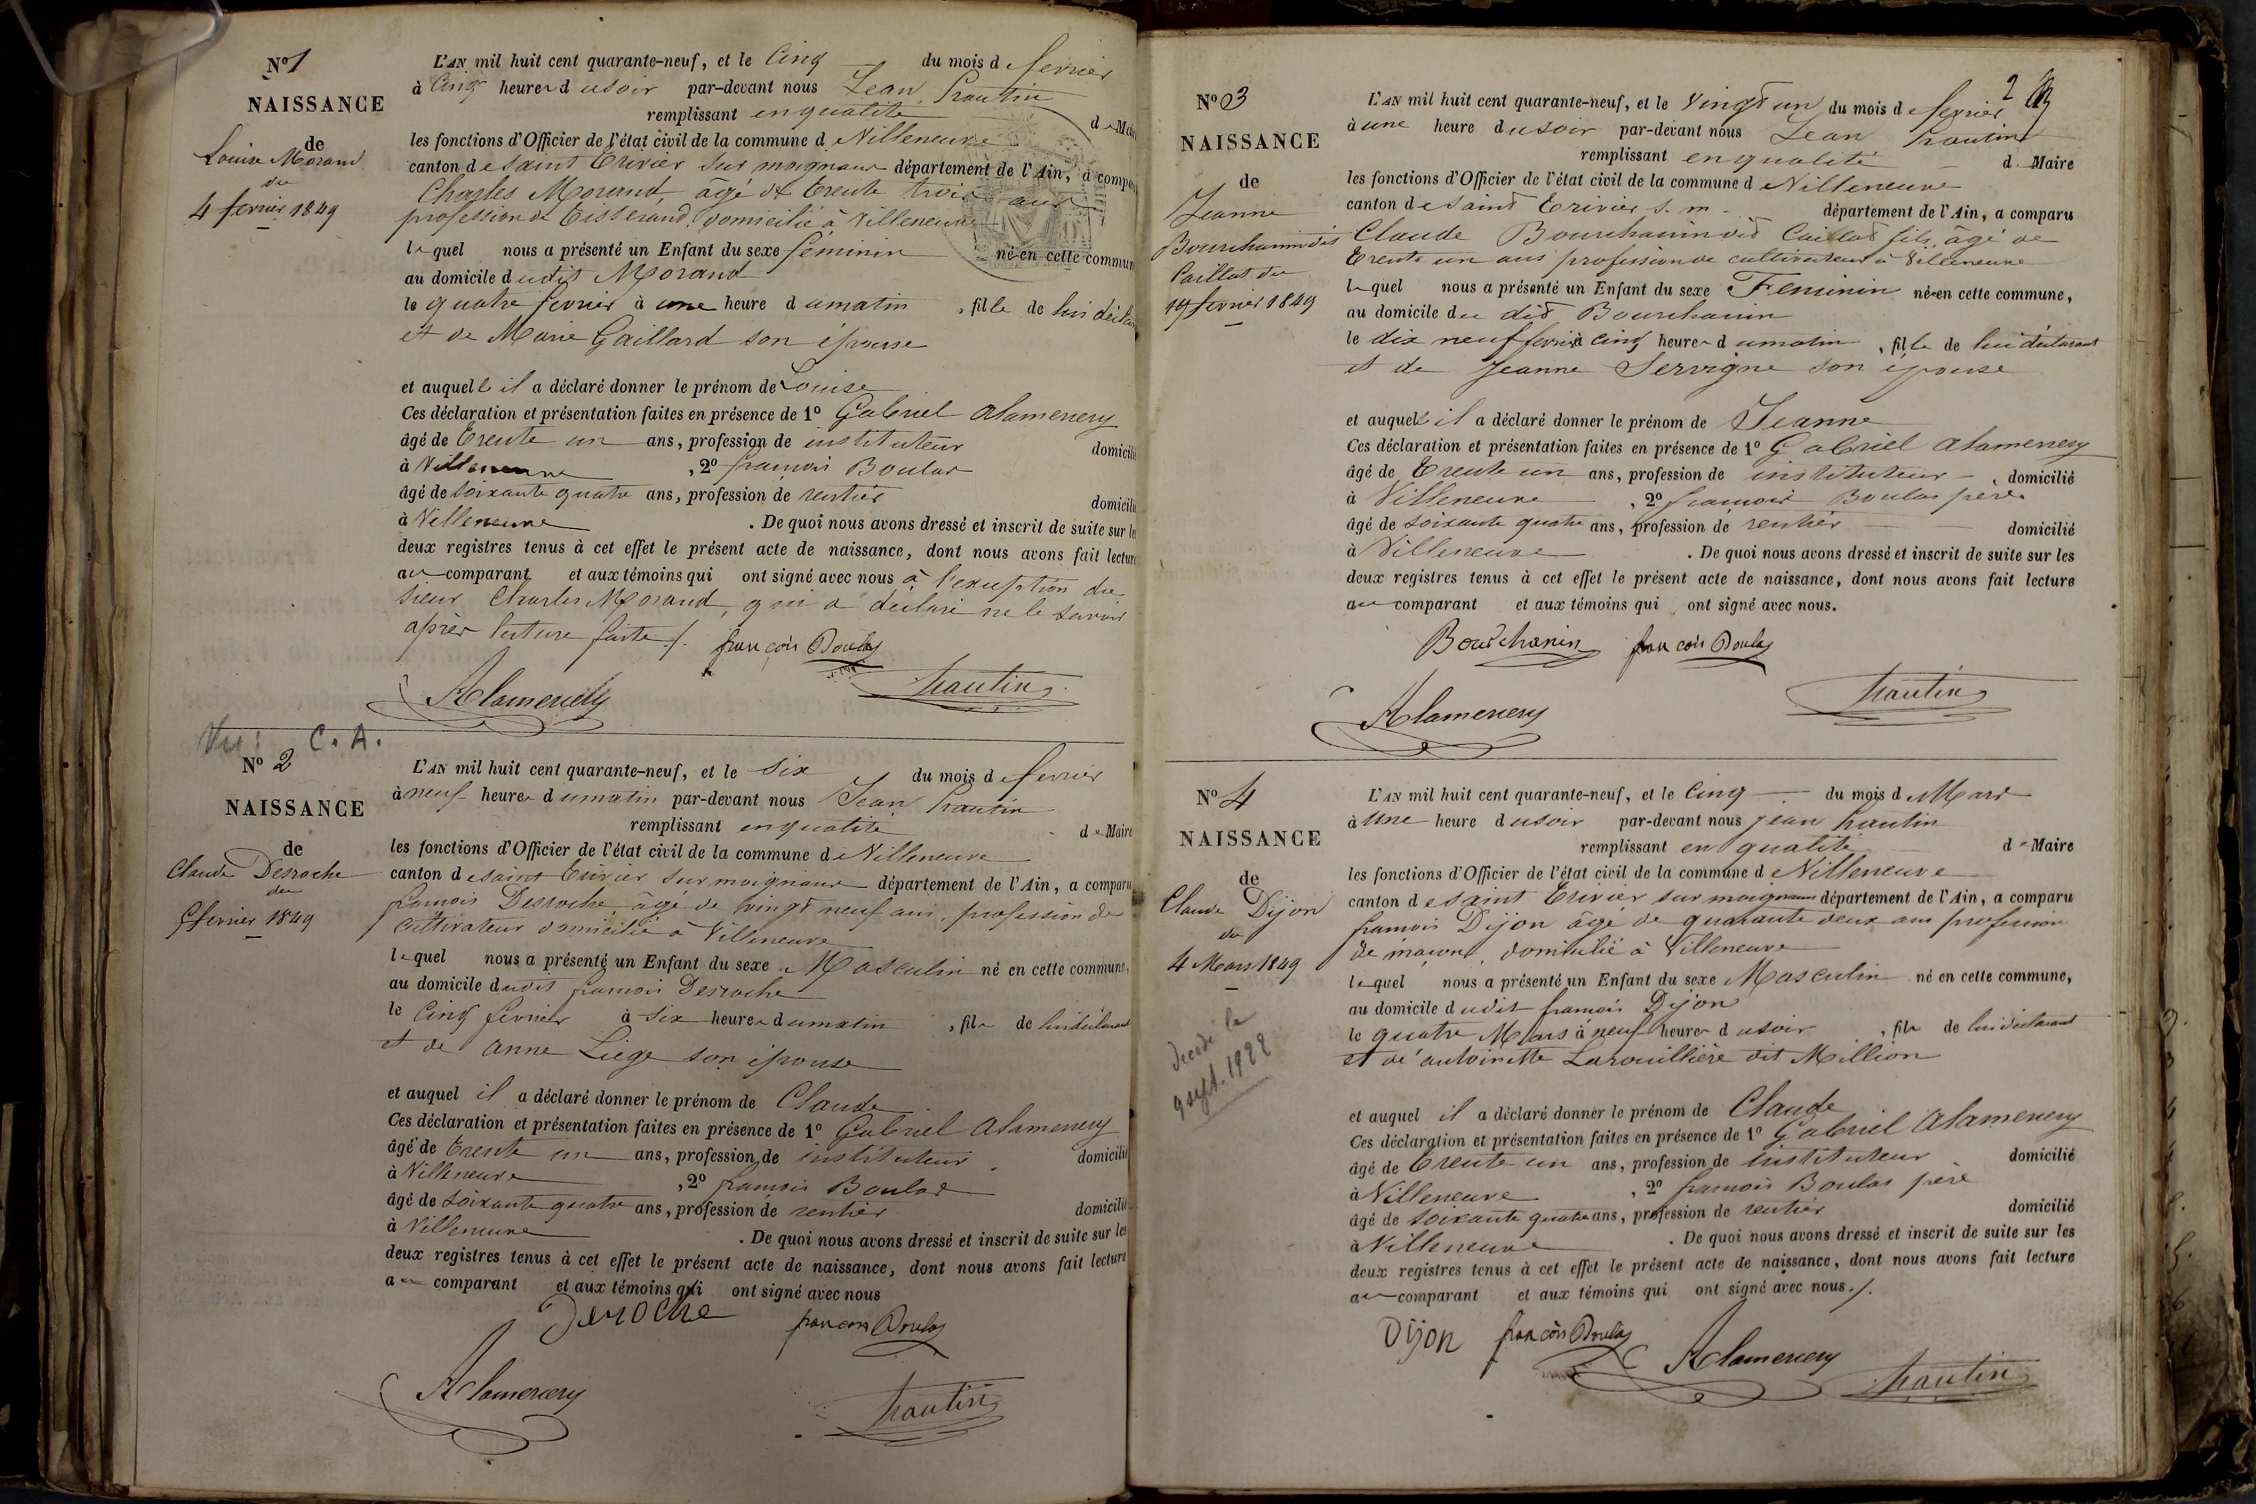 N° 1
NAISSANCE
de
Louise Morand
du
4 fevrier 1849
L'AN mil huit cent quarante-neuf, et le Cinq du mois de fevrier
à Cinq heures du soir par-devant nous Jean
remplissant en qualité de Maire
les fonctions d'Officier de l'état civil de la commune de Villeneuve
canton de saint Trivier sur moignans département de l'Ain, a comparu
Charles Morand, âgé de trente trois ans
profession de tisserand domicilié à Villeneuve
lequel nous a présenté un Enfant du sexe féminin né en cette commune
au domicile dudit Morand
le quatre fevrier à une heure du matin, fille de lui déclarant
et de Marie Gaillard son épouse
et auquelle il a déclaré donner le prénom de Louise
Ces déclaration et présentation faites en présence de 1° Gabriel Alamercery
âgé de trente un ans, profession de instituteur domicilié
à Villeneuve, 2° françois Boulas
âgé de soixante quatre ans, profession de rentier domicilié
à Villeneuve. De quoi nous avons dressé et inscrit de suite sur les
deux registres tenus à cet effet le présent acte de naissance, dont nous avons fait lecture
au comparant et aux témoins qui ont signé avec nous à l'exception du
sieur Charles Morand, qui a déclaré ne le savoir
après lecture faite ./.
françois Boulas
Alamercery
Vu : C. A.
N° 2
NAISSANCE
de
Claude Desroche
du
5 fevrier 1849
L'AN mil huit cent quarante-neuf, et le six du mois de fevrier
à neuf heures du matin par-devant nous Jean
remplissant en qualité de Maire
les fonctions d'Officier de l'état civil de la commune de Villeneuve
canton de saint Trivier sur moignans département de l'Ain, a comparu
françois Desroche âgé de vingt neuf ans, profession de
Cultivateur domicilié à Villeneuve
lequel nous a présenté un Enfant du sexe Masculin né en cette commune,
au domicile dudit françois Desroche
le Cinq fevrier à six heures du matin, fils de lui déclarant
et de anne Liège son épouse
et auquel il a déclaré donner le prénom de Claude
Ces déclaration et présentation faites en présence de 1° Gabriel Alamercery
âgé de trente un ans, profession de instituteur domicilié
à Villeneuve, 2° françois Boulas
âgé de soixante quatre ans, profession de rentier domicilié
à Villeneuve. De quoi nous avons dressé et inscrit de suite sur les
deux registres tenus à cet effet le présent acte de naissance, dont nous avons fait lecture
au comparant et aux témoins qui ont signé avec nous
Deroche françois Boulas
Alamercery
2
N° 3
NAISSANCE
de
Jeanne
Bourchanin dit
Caillat du
19 fevrier 1849
L'AN mil huit cent quarante-neuf, et le vingt un du mois de fevrier
à une heure du soir par-devant nous Jean
remplissant en qualité de Maire
les fonctions d'Officier de l'état civil de la commune de Villeneuve
canton de saint Trivier s. m. département de l'Ain, a comparu
Claude Bourchanin dit Caillat fils, âgé de
trente un ans profession de cultivateur à Villeneuve
lequel nous a présenté un Enfant du sexe Feminin née en cette commune,
au domicile du dit Bourchanin
le dix neuf fevrier à cinq heures du matin, fille de lui déclarant
et de Jeanne Servigne son épouse
et auquelle il a déclaré donner le prénom de Jeanne
Ces déclaration et présentation faites en présence de 1° Gabriel Alamercery
âgé de trente un ans, profession de instituteur, domicilié
à Villeneuve, 2° françois Boulas père
âgé de soixante quatre ans, profession de rentier domicilié
à Villeneuve. De quoi nous avons dressé et inscrit de suite sur les
deux registres tenus à cet effet le présent acte de naissance, dont nous avons fait lecture
au comparant et aux témoins qui ont signé avec nous.
Bourchanin françois Boulas
Alamercery
N° 4
NAISSANCE
de
Claude Dijon
du
4 Mars 1849
décédé le
9 sept. 1922
L'AN mil huit cent quarante-neuf, et le Cinq du mois de Mars
à une heure du soir par-devant nous Jean
remplissant en qualité de Maire
les fonctions d'Officier de l'état civil de la commune de Villeneuve
canton de saint Trivier sur moignans département de l'Ain, a comparu
françois Dijon âgé de quarante deux ans profession
de maçon, domicilié à Villeneuve
lequel nous a présenté un Enfant du sexe Masculin né en cette commune,
au domicile dudit françois Dijon
le quatre Mars à neuf heures du soir, fils de lui déclarant
et de antoinette Larouillière dit Million
et auquel il a déclaré donner le prénom de Claude
Ces déclaration et présentation faites en présence de 1° Gabriel Alamercery
âgé de trente un ans, profession de instituteur domicilié
à Villeneuve, 2° françois Boulas père
âgé de soixante quatre ans, profession de rentier domicilié
à Villeneuve. De quoi nous avons dressé et inscrit de suite sur les
deux registres tenus à cet effet le présent acte de naissance, dont nous avons fait lecture
au comparant et aux témoins qui ont signé avec nous ./.
Dijon françois Boulas Alamercery